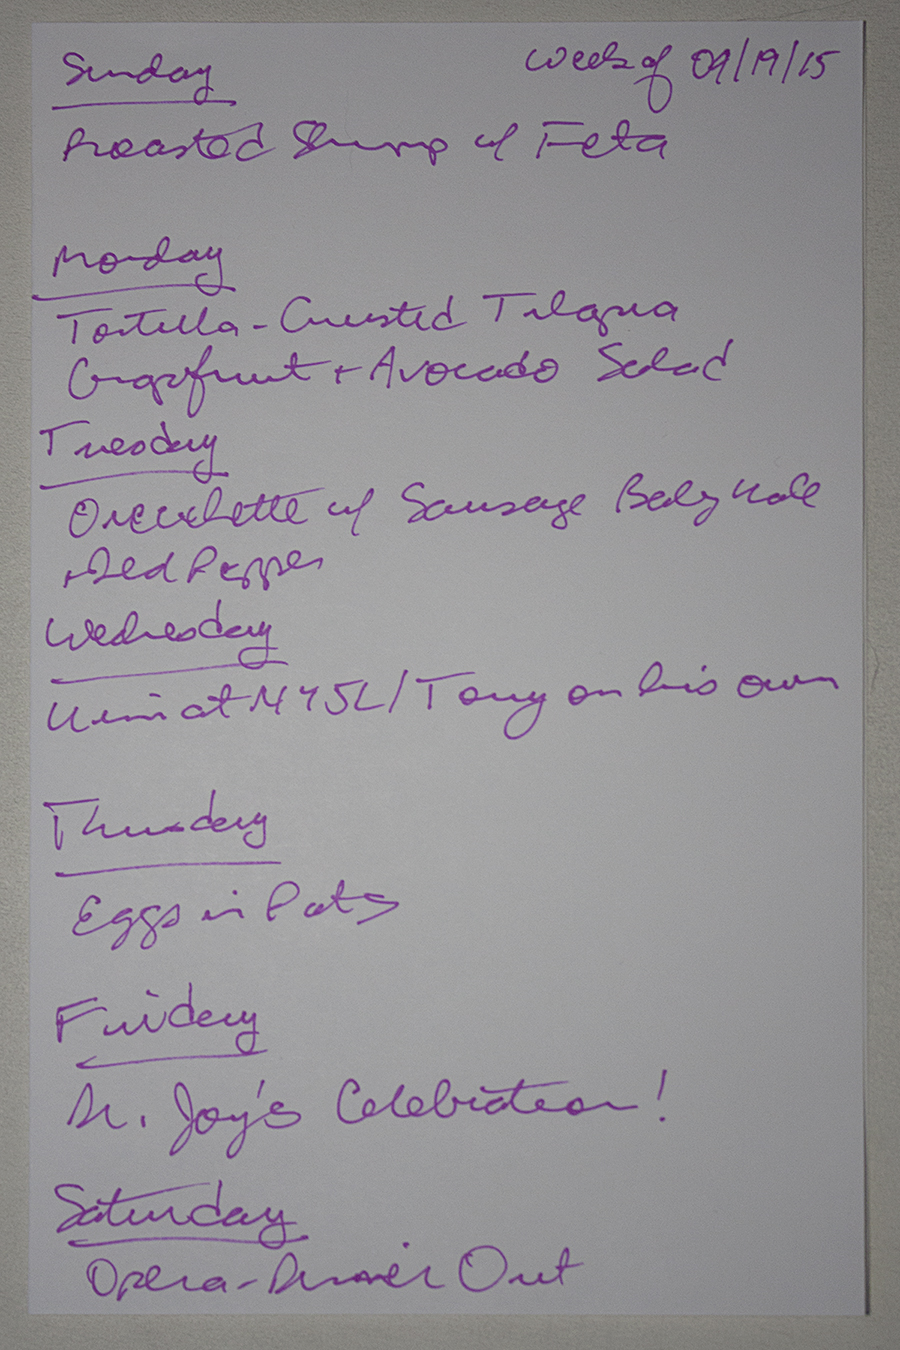 Sunday Week of 09/19/15
Roasted Shrimp w/ Feta
Monday
Tortilla-Crusted Tilapia
Grapefruit + Avocado Salad
Tuesday
Orecchiette w/ Sausage Baby Kale
+ Red Pepper
Wednesday
Kim at NYSL/Tony on his own
Thursday
Eggs in Pots
Friday
Dr. Joy's Celebration!
Saturday
Opera-Dinner Out